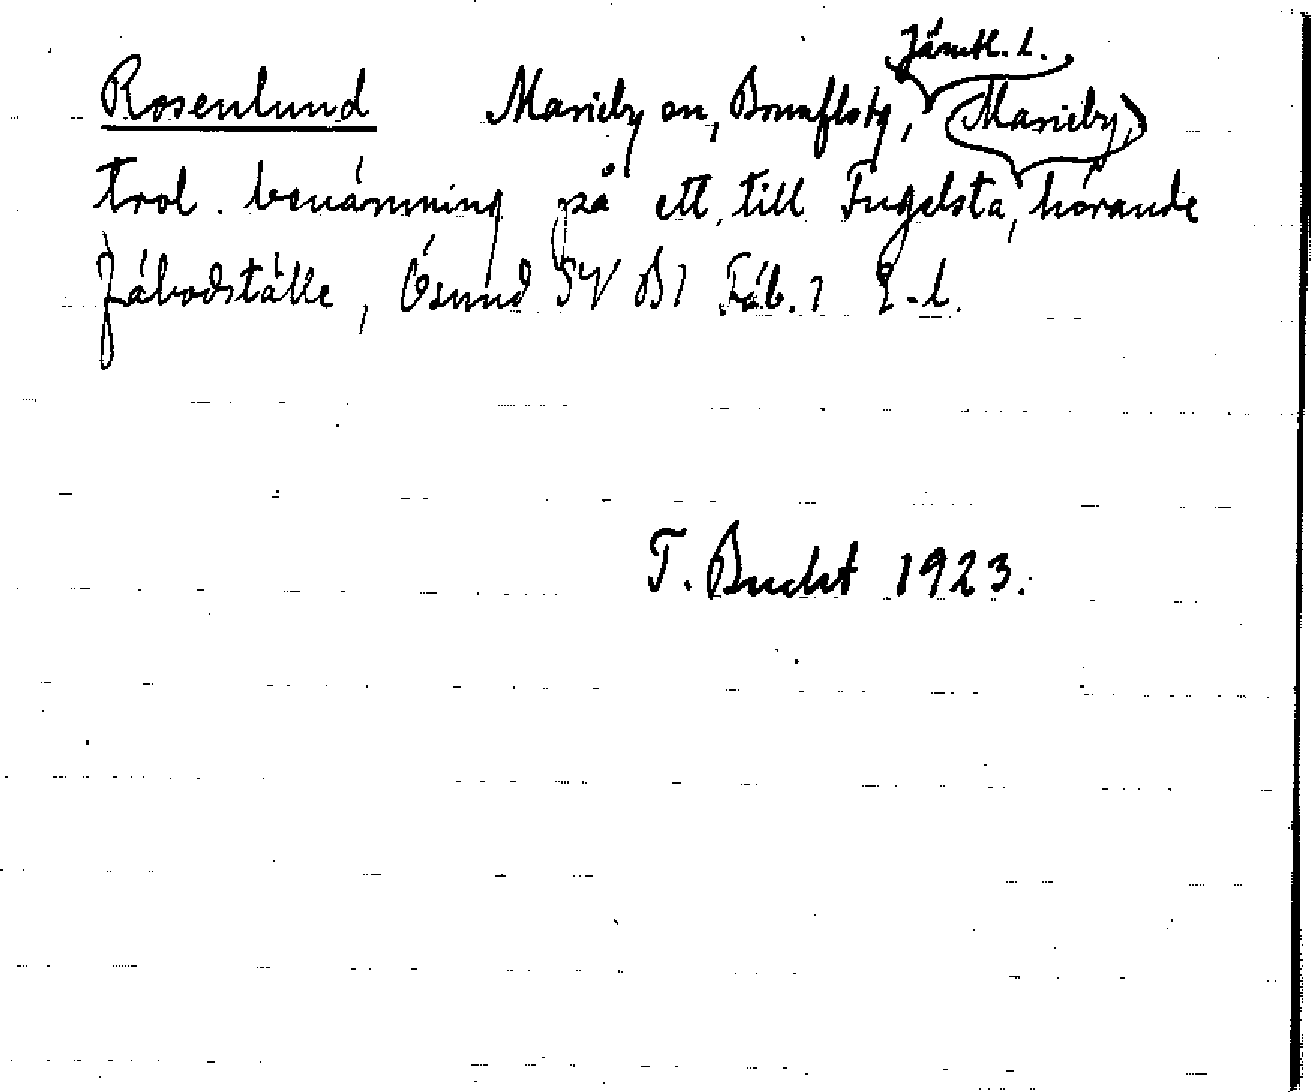 Jämtl. l.
Rosenlund Marieby sn, Brunfloty, (Marieby)
trol. benämning på ett, till Fugelsta, hörande
fäbodställe, Ösund SV B1 Fäb. 1 E-l.
T. Bucht 1923.